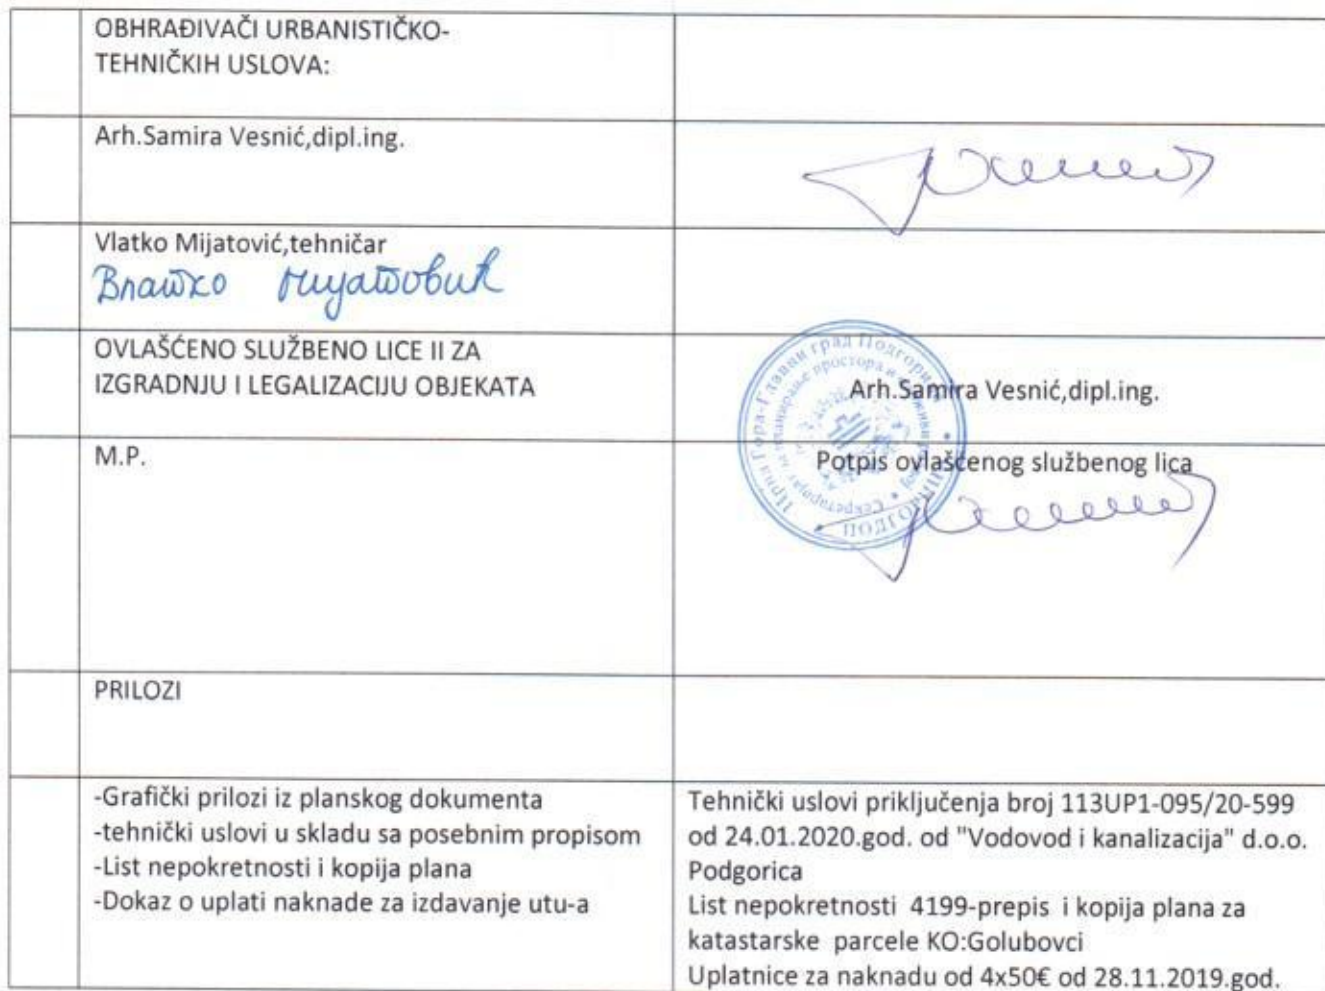 OBHRAĐIVAČI URBANISTIČKO-
TEHNIČKIH USLOVA:
Arh.Samira Vesnić,dipl.ing.
Vlatko Mijatović,tehničar
Влатко Мијатовић
OVLAŠĆENO SLUŽBENO LICE II ZA
IZGRADNJU I LEGALIZACIJU OBJEKATA
Arh.Samira Vesnić,dipl.ing.
Црна Гора-Главни град Подгорица
ПОДГОРИЦА
Секретаријат за планирање простора и одрживи развој
M.P.
Potpis ovlašćenog službenog lica
PRILOZI
-Grafički prilozi iz planskog dokumenta
-tehnički uslovi u skladu sa posebnim propisom
-List nepokretnosti i kopija plana
-Dokaz o uplati naknade za izdavanje utu-a
Tehnički uslovi priključenja broj 113UP1-095/20-599
od 24.01.2020.god. od "Vodovod i kanalizacija" d.o.o.
Podgorica
List nepokretnosti 4199-prepis i kopija plana za
katastarske parcele KO:Golubovci
Uplatnice za naknadu od 4x50€ od 28.11.2019.god.